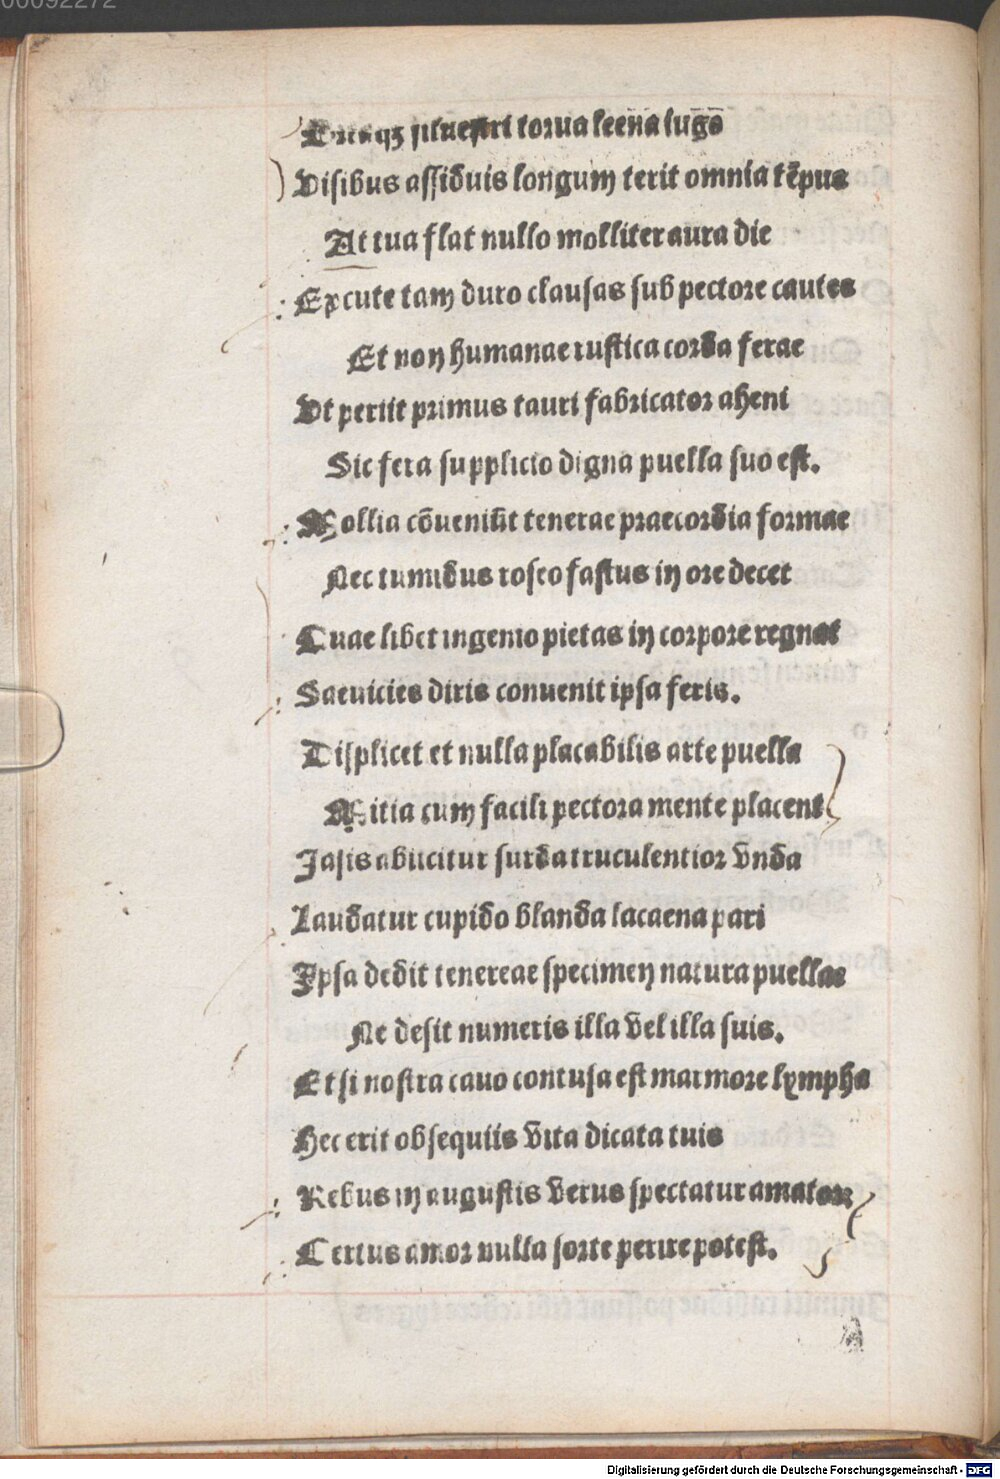 00092272
siluestri torua leena iugo
Visibus assiduis longum terit omnia tẽpus
At tua flat nullo molliter aura die
Excute tam duro clausas sub pectore cautes
Et non humanae rustica corda ferae
Vt periit primus tauri fabricator aheni
Sic fera supplicio digna puella suo est.
Mollia cõueniũt tenerae praecordia formae
Nec tumidus roseo fastus in ore decet
Cuae libet ingenio pietas in corpore regnat
Saeuicies diris conuenit ipsa feris.
Displicet et nulla placabilis arte puella
Mitia cum facili pectora mente placent
Iasis abiicitur surda truculentior vnda
Laudatur cupido blanda lacaena pari
Ipsa dedit tenereae specimen natura puellae
Ne desit numeris illa vel illa suis.
Et si nostra cauo contusa est marmore lympha
Hec erit obsequiis vita dicata tuis
Rebus in augustis verus spectatur amator
Certus amor nulla sorte perire potest.
Digitalisierung gefördert durch die Deutsche Forschungsgemeinschaft - DFG